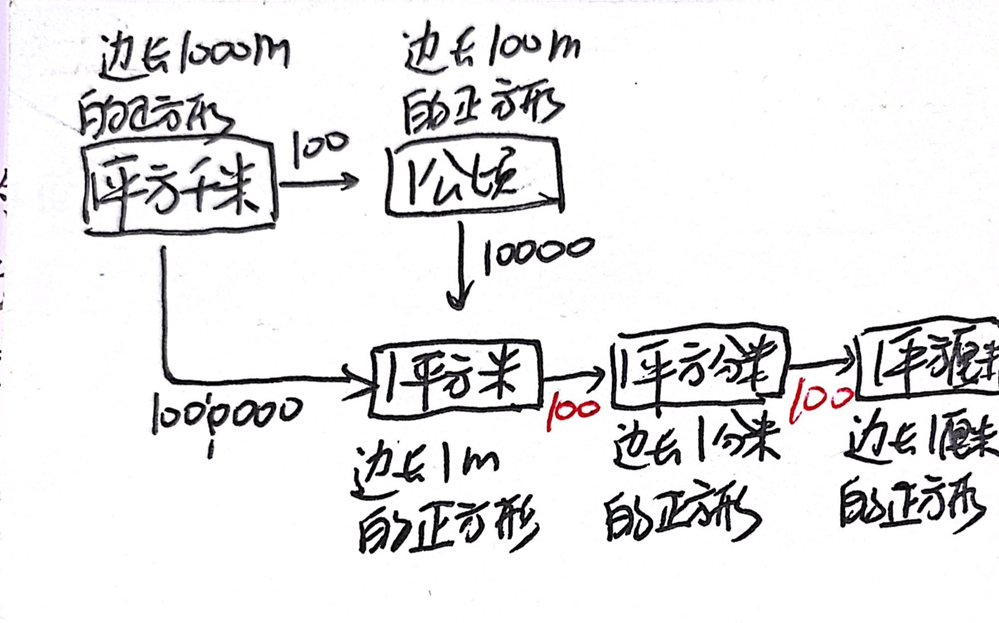 边长1000m
的正方形
边长100m
的正方形
1平方千米
100
1公顷
10000
1平方米
100
1平方分米
100
1平方厘米
1000000
边长1m
的正方形
边长1分米
的正方形
边长1厘米
的正方形